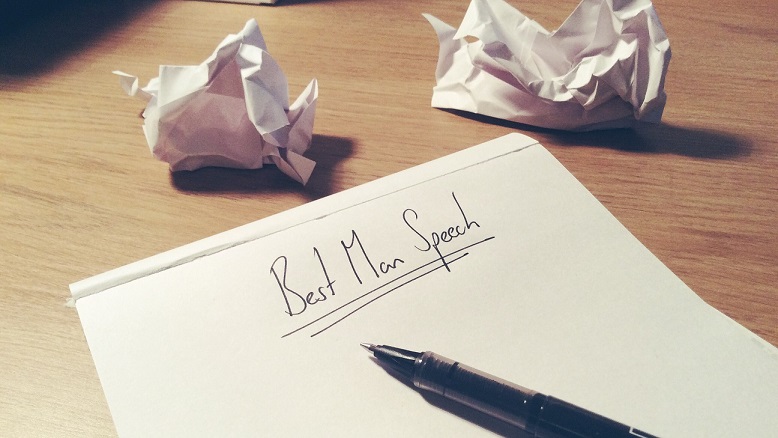 Best Man Speech